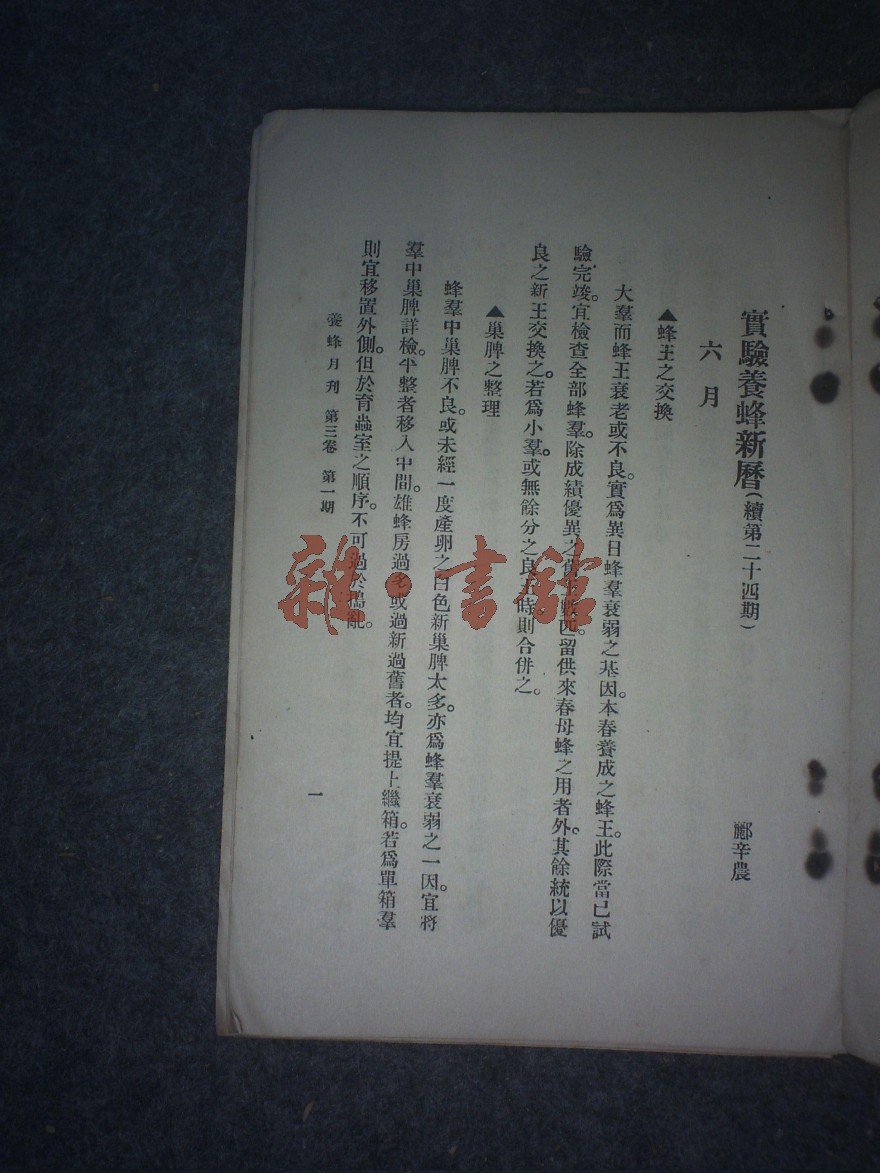 實驗養蜂新曆(續第二十四期)
酈辛農
六月
▲蜂王之交換
大羣而蜂王衰老或不良。實爲異日蜂羣衰弱之基因。本春養成之蜂王。此際當已試
驗完竣。宜檢查全部蜂羣。除成績優異之舊王數匹。留供來春母蜂之用者外。其餘統以優
良之新王交換之。若爲小羣。或無餘分之良王時則合併之。
▲巢脾之整理
蜂羣中巢脾不良。或未經一度產卵之白色新巢脾太多。亦爲蜂羣衰弱之一因。宜將
羣中巢脾詳檢。平整者移入中間。雄蜂房過多或過新過舊者。均宜提上繼箱。若爲單箱羣
則宜移置外側。但於育蟲室之順序。不可過於搗亂。
養蜂月刊 第三卷 第一期
一
雜·書館